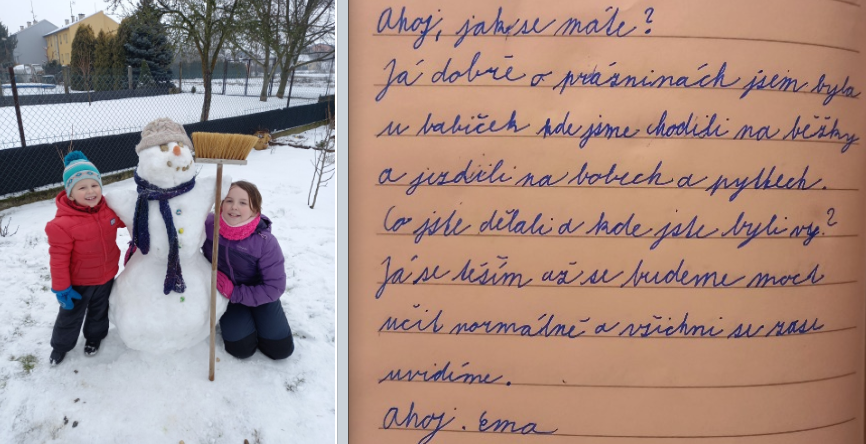 Ahoj, jak se máte?
Já dobře o prázninách jsem byla
u babiček kde jsme chodili na běžky
a jezdili na bobech a pytlech.
Co jste dělali a kde jste byli vy?
Já se těším až se budeme moct
učit normálně a všichni se zase
uvidíme.
Ahoj. Ema